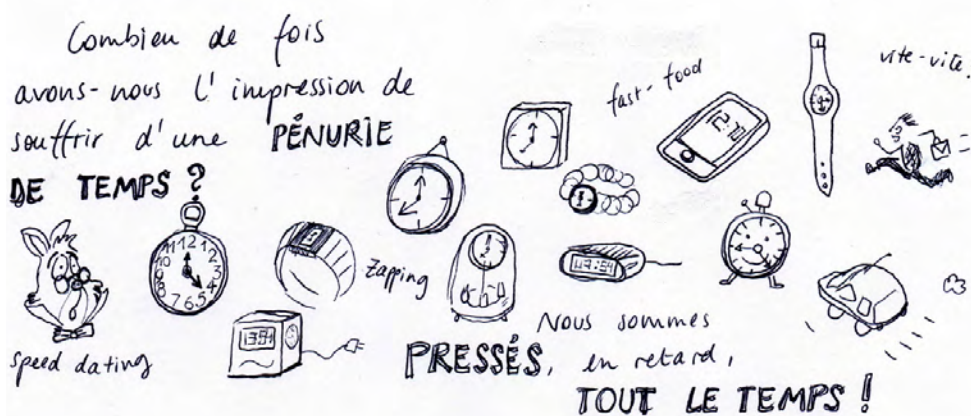 Combien de fois
avons-nous l'impression de
souffrir d'une PÉNURIE
DE TEMPS ?
fast-food
vite-vite.
12 1 2 3 4 5 6 7 8 9 10 11
Zapping
speed dating
Nous sommes
PRESSÉS, en retard,
TOUT LE TEMPS !